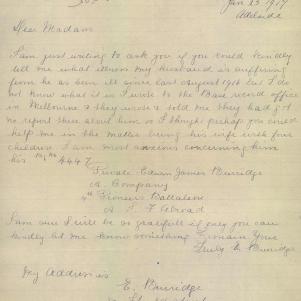 Jan 23 1917
Adelaide
Dear Madam
I am just writing to ask you if you could kindly
tell me what illness my Husband is suffering
from he as been ill since last august 1916 but I do
not know what it is I wrote to the Base record office
in Melbourne & they wrote & told me they had got
no report there about him so I thought perhaps you could
help me in the matter being his wife with four
children I am most anxious concerning him
his No 4447
Private Edwin James Burridge
A Company
4th Pioneers Battalion
A I F Abroad
I am sure I will be so gratefull if only you can
kindly let me know something I remain Yours
Truly E Burridge
My Address is
E. Burridge